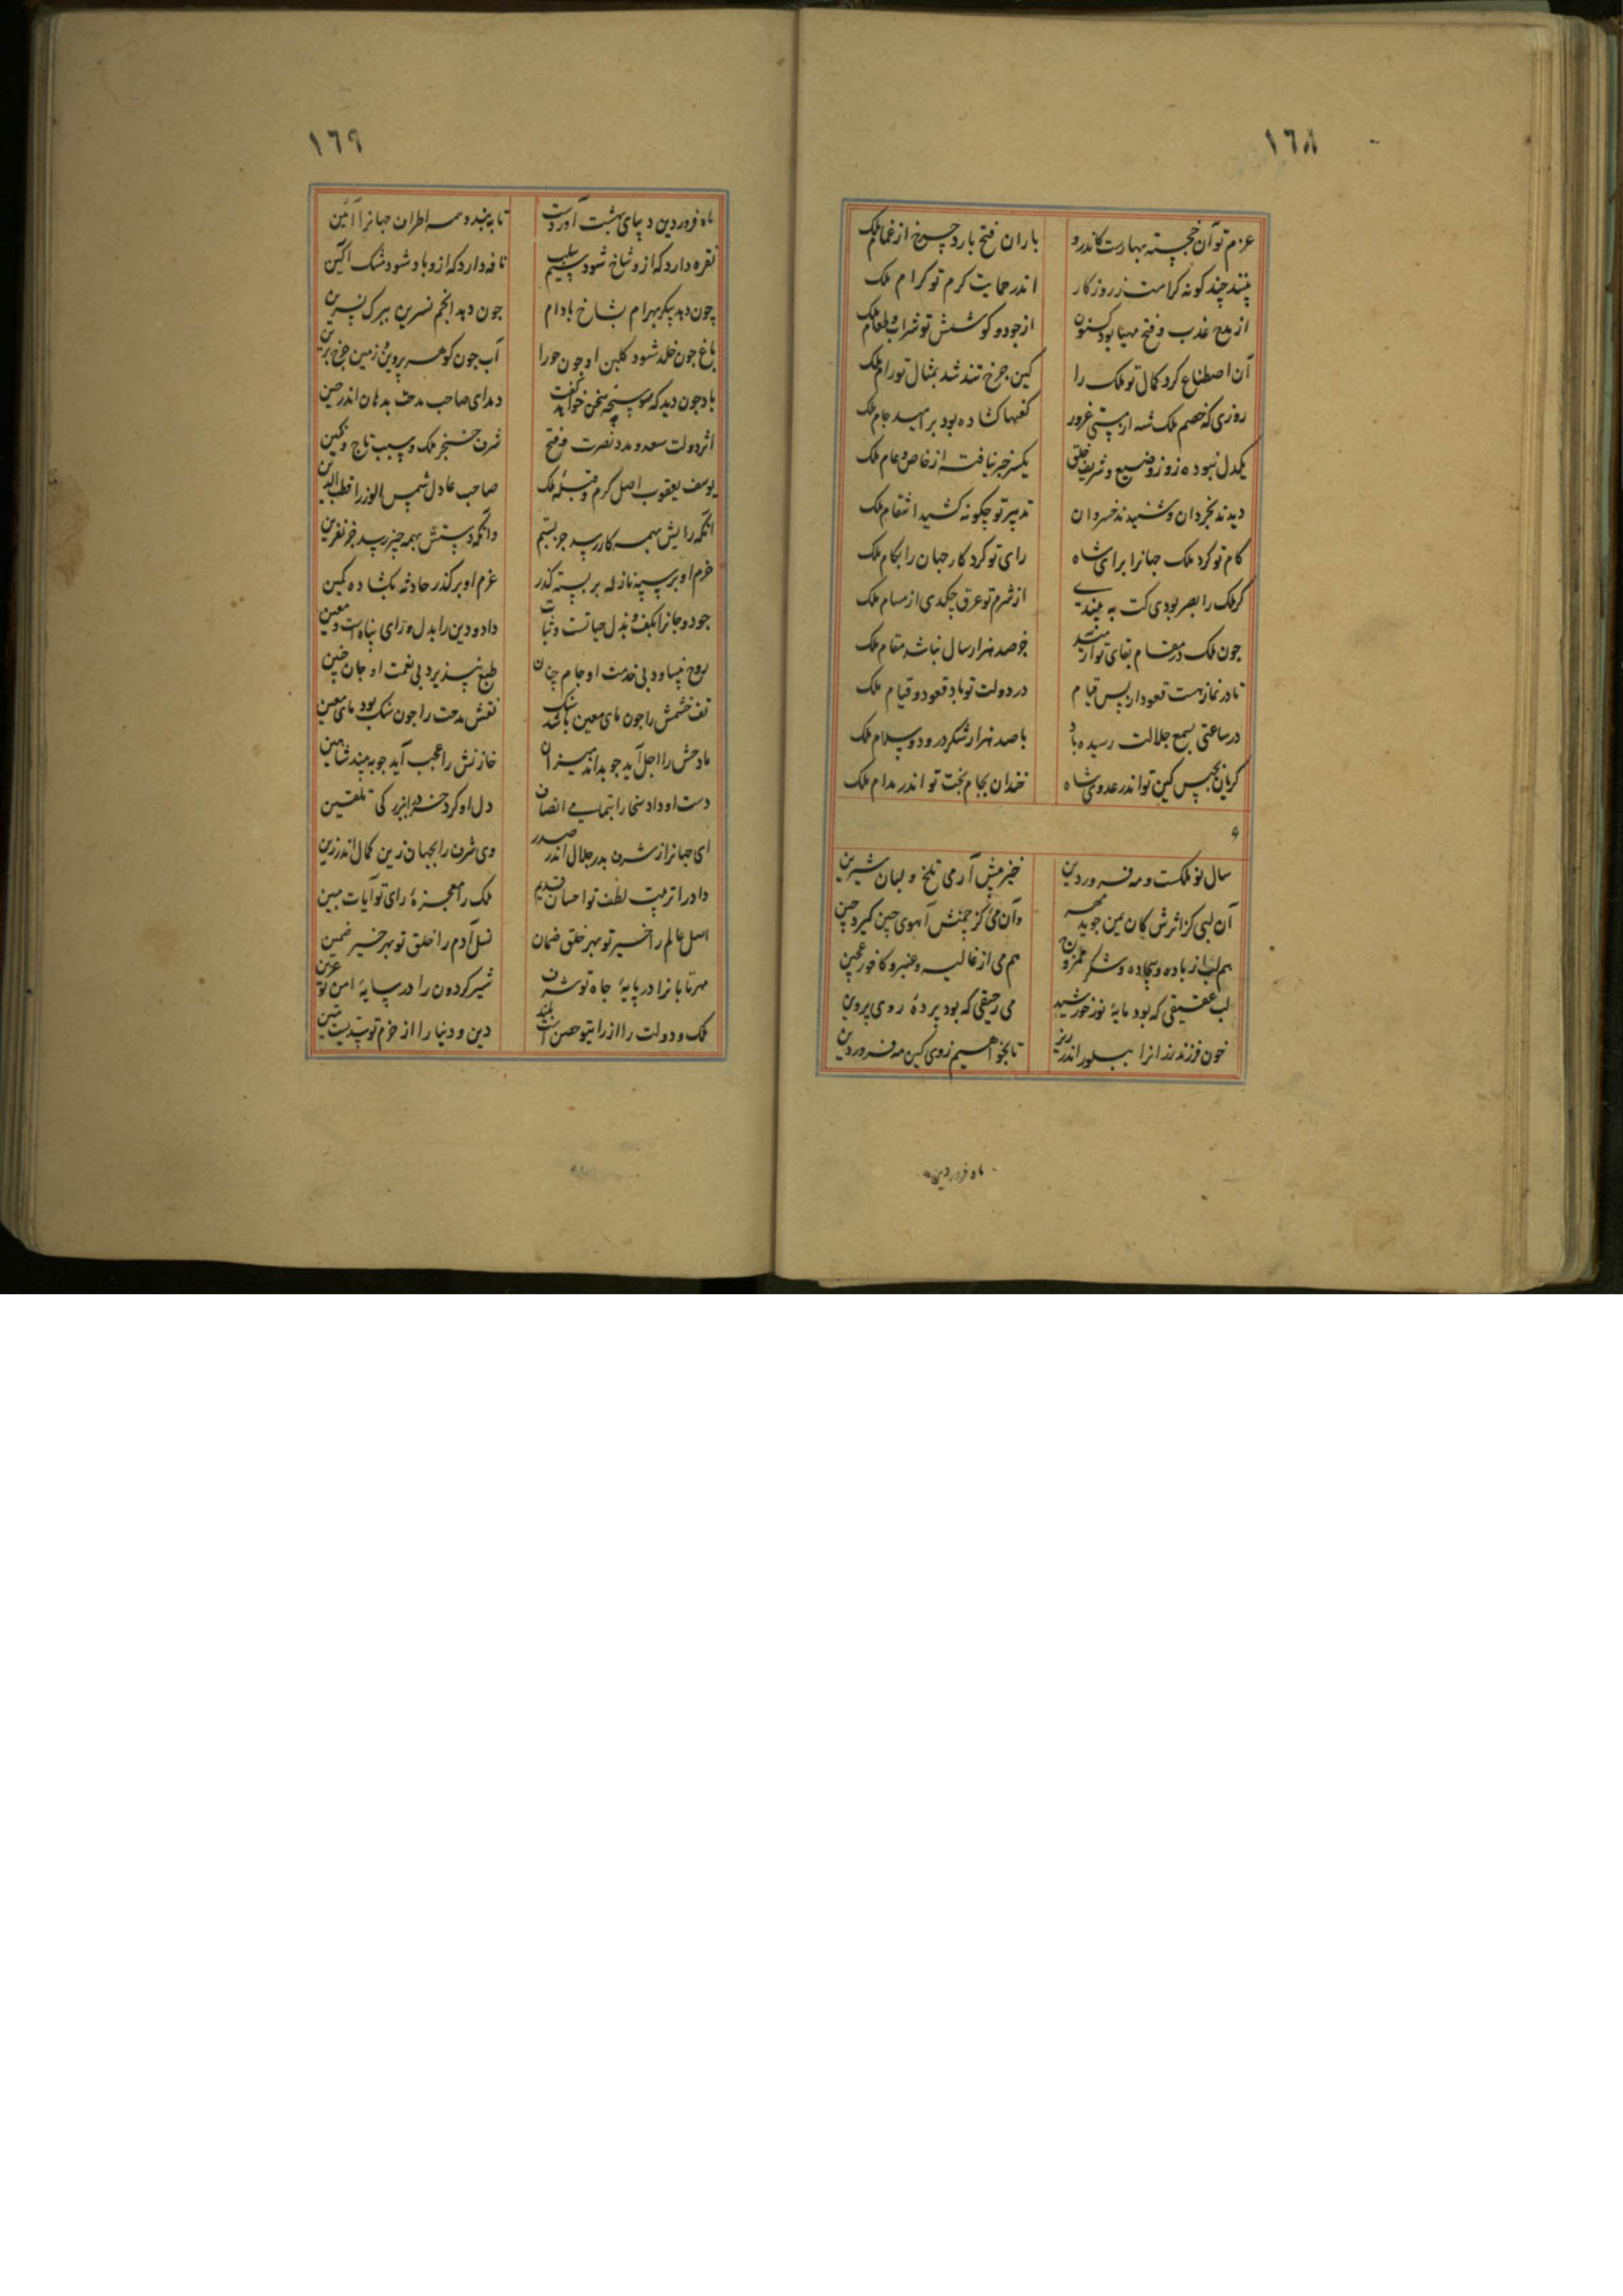 ١٦٨
عزم تو آن خجسته بهارست کاندرو باران فتح بارد چرخ از غمام ملک
بینند چند کونه کرامت ز روزکار اندر حمایت کرم تو کرام ملک
از مدح عذب و فتح مهیا بود کنون از جود و کوشش تو شراب و طعام ملک
آن اصطناع کرد کمال تو ملک را کین چرخ تند شد بمثال تو رام ملک
روزی که خصم ملک شه از مستی غرور کفها کشاده بود بر امید جام ملک
یکدل نبوده زو ز وضیع و شریف خلق یکسر خبر نیافته از خاص و عام ملک
دیدند بخردان و شنیدند خسروان تدبیر تو چکونه کشید انتقام ملک
کام تو کرد ملک جهانرا برای شاه رای تو کرد کار جهان را بکام ملک
کر ملک را بصر بودی کت به بیندی از شرم تو عرق چکدی از مسام ملک
چون ملک در مقام بقای تو آرمید جز صد هزار سال نباشد مقام ملک
تا در نماز هست قعود از پس قیام در دولت تو باد قعود و قیام ملک
در ساعتی بسمع جلالت رسیده باد با صد هزار شکر درود و سلام ملک
کریان بحبس کین تو اندر عدوی شاه خندان بجام بخت تو اندر مدام ملک
سال نو ملکست و مه فروردین خیز پیش آر می تلخ و لبان شیرین
آن لبی کز اثرش کان یمن جوید مهر وآن میی کز چمنش آهوی چین کیرد چین
هم لب از باده و بیجاده و شکر ممزوج هم می از غالیه و عنبر و کافور عجین
لب عقیقی که بود مایهٔ نور خورشید می رحیقی که بود پردهٔ روی پروین
خون فرزند رزانرا ببلور اندر ریز تا بخواهیم ز وی کین مه فروردین
ماه فروردین
١٦٩
ماه فروردین دیبای بهشت آوردست تا به بندد همه اطراف جهانرا آئین
نقره دارد که ازو شاخ شود سیم سلب نافه دارد که ازو باد شود مشک آکین
چون دهد پیکر بهرام بشاخ بادام چون دهد انجم نسرین ببرک نسرین
باغ چون خلد شود کلبن او چون حورا آب چون کوهر پروین و زمین چرخ برین
باد چون دید که سوسن سخن خواهد کفت دمد ای صاحب مدحت بدهان اندر حین
اثر دولت سعد و مدد نصرت و فتح شرف خنجر ملک و سبب تاج و نکین
یوسف یعقوب اصل کرم و قبلهٔ ملک صاحب عادل شمس الوزرا قطب الدین
آنکه رایش بهمه کار رسد جز بستم وآنکه دستش بهمه چیز رسد جز نفرین
حزم او بر سپه نازله بر بسته کذر عزم او بر کذر حادثه بکشاده کمین
جود و جانرا بکف و بذل حیاتست و ثبات داد و دین را بدل و رای پناه است و معین
روح نپساود بی خدمت او جام چنان طبع نپذیرد بی نعمت او جان جنین
تف خشمش را چون مای معین باشد سنک نقش مدحت را چون سنک بود مای معین
مادحش را اجل آید چو بداند میزان خازنش را عجب آید چو به بیند شاهین
دست او داد سخا را بتمامی انصاف دل او کرد خرد را ببزرکی تلقین
ای جهانرا ز شرف بدر جلال اندر صدر وی شرف را بجهان زین کمال اندر زین
داد را تربیت لطف تو احسان قدیم ملک را معجزهٔ رای تو آیات مبین
اصل عالم را خیر تو بهر خلق ضمان نسل آدم را خلق تو بهر خیر ضمین
مهر تابانرا در پایهٔ جاه تو شرف شیر کردون را در سایهٔ امن تو عرین
ملک و دولت را از رای تو حصن است بلند دین و دنیا را از حزم تو سدیست متین